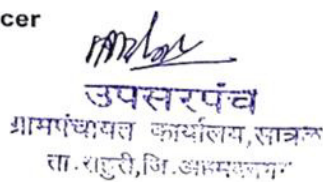 cer
उपसरपंच
ग्रामपंचायत कार्यालय,
ता. राहुरी,जि.अहमदनगर